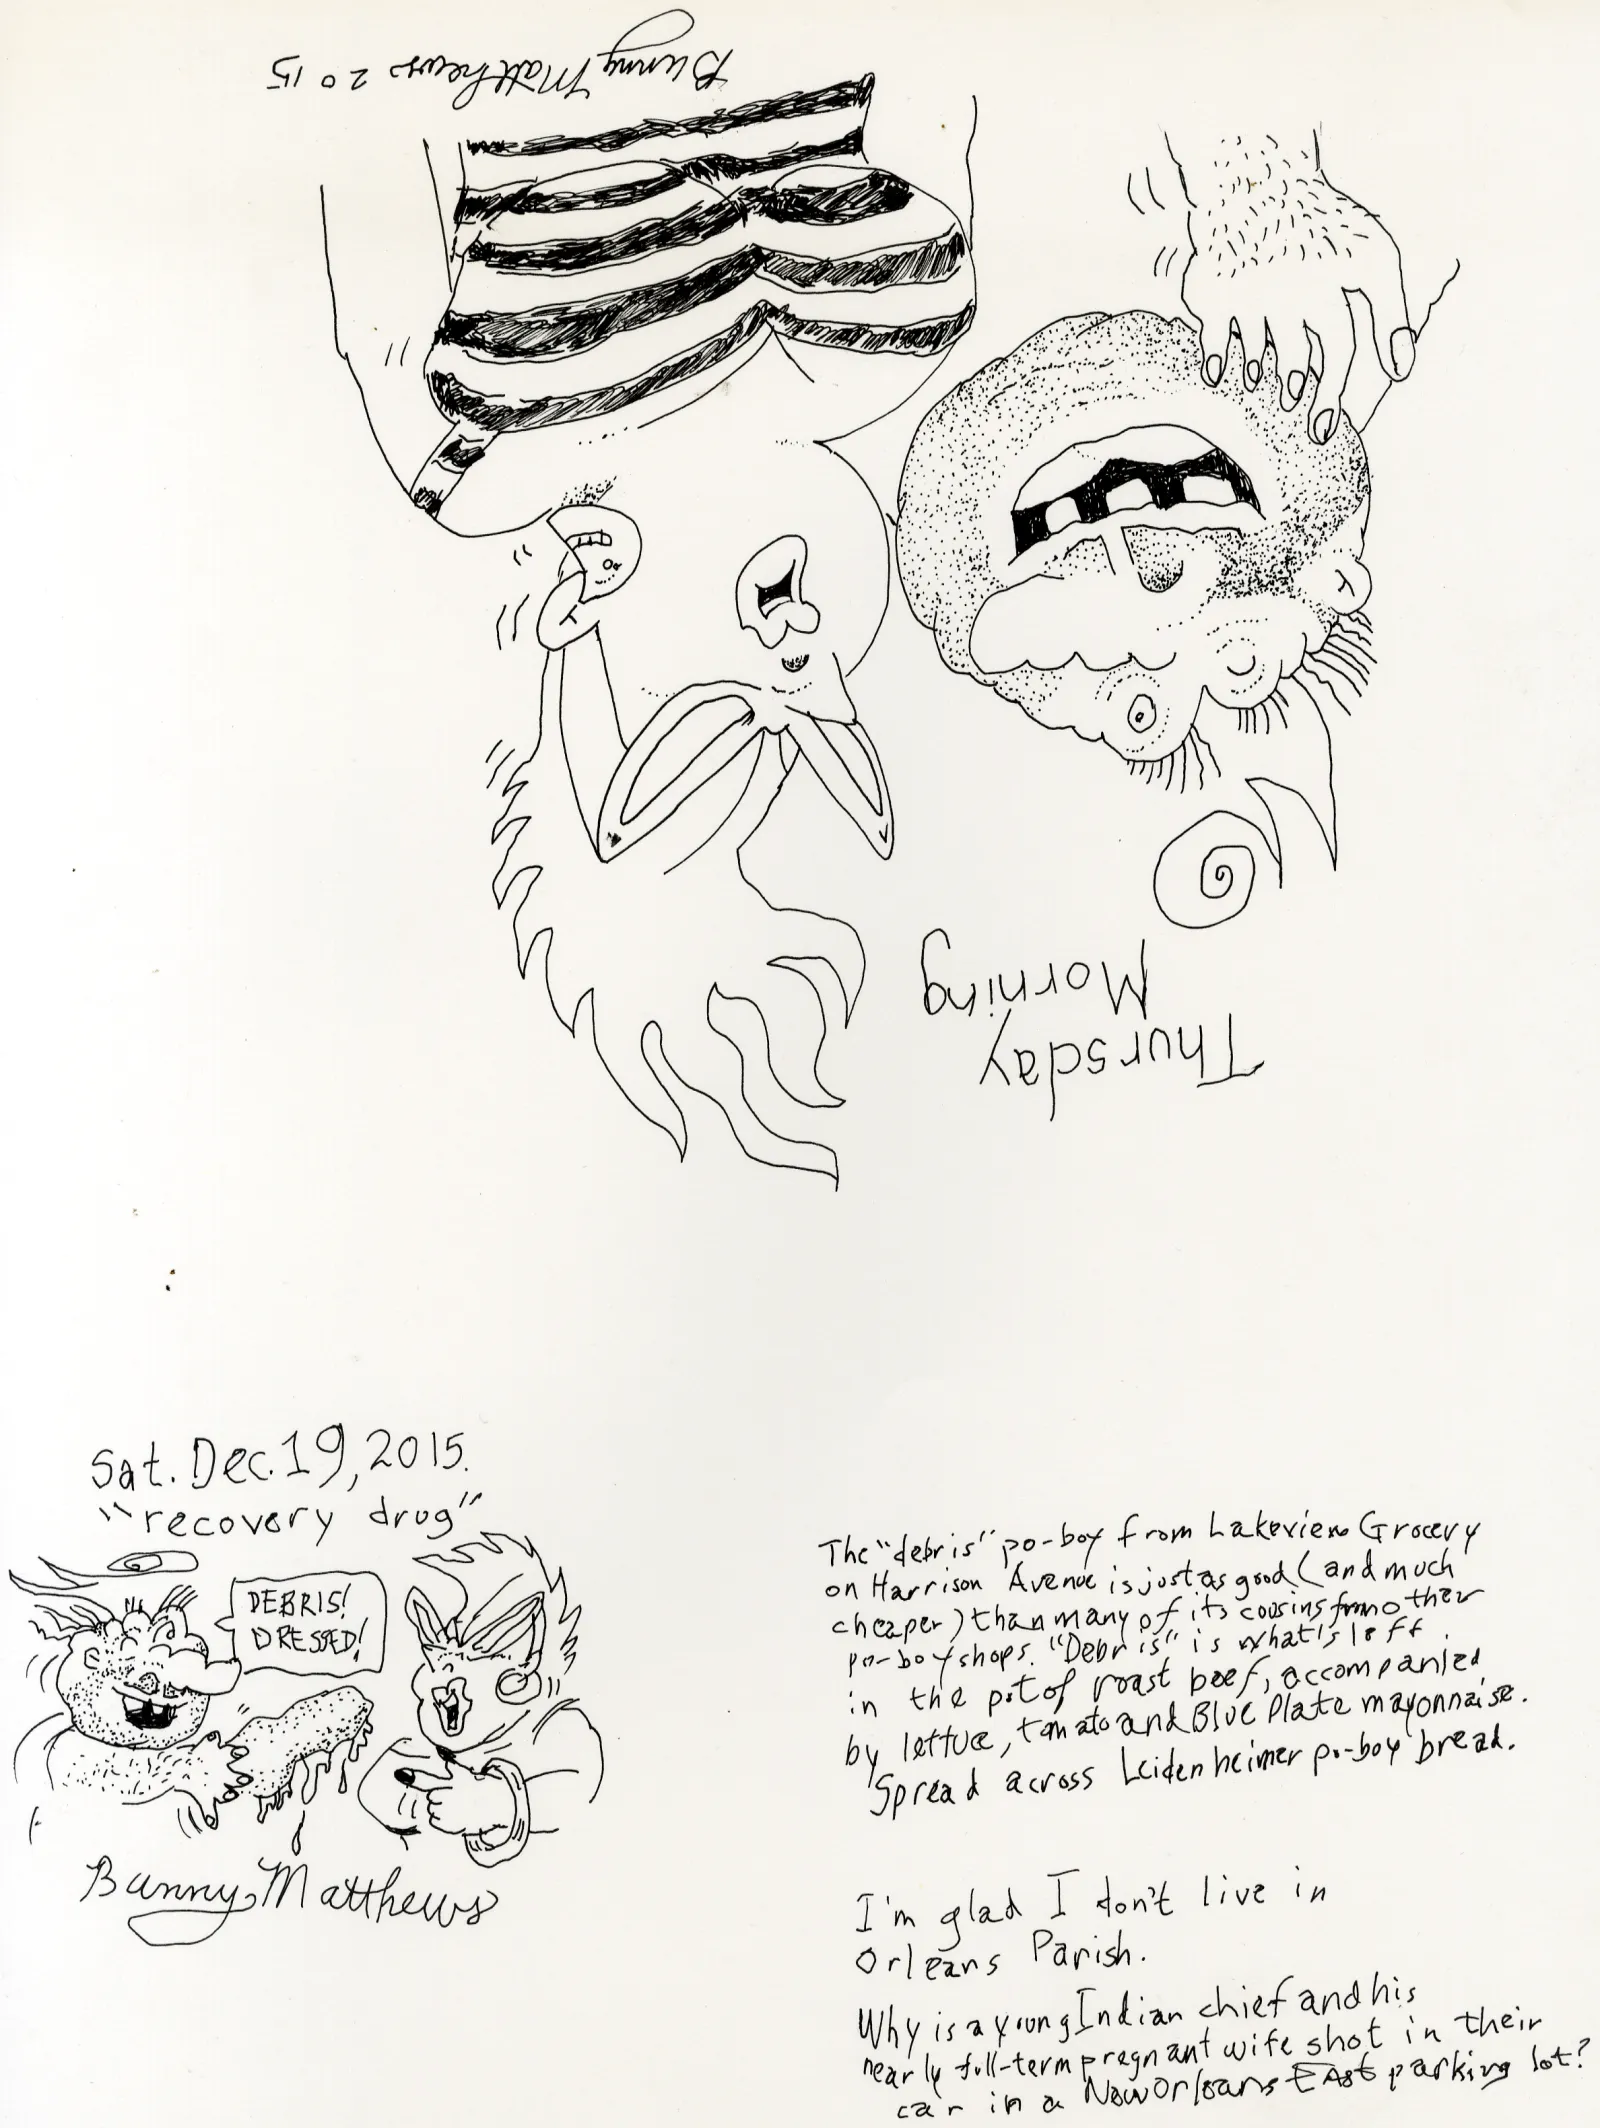 Bunny Matthews 2015
Thursday
Morning
Sat. Dec. 19, 2015.
"recovery drug"
DEBRIS!
DRESSED!
Bunny Matthews
The "debris" po-boy from Lakeview Grocery
on Harrison Avenue is just as good (and much
cheaper) than many of its cousins from other
po-boy shops. "Debris" is what's left
in the pot of roast beef, accompanied
by lettuce, tomato and Blue Plate mayonnaise.
Spread across Leidenheimer po-boy bread.
I'm glad I don't live in
Orleans Parish.
Why is a young Indian chief and his
nearly full-term pregnant wife shot in their
car in a New Orleans East parking lot?